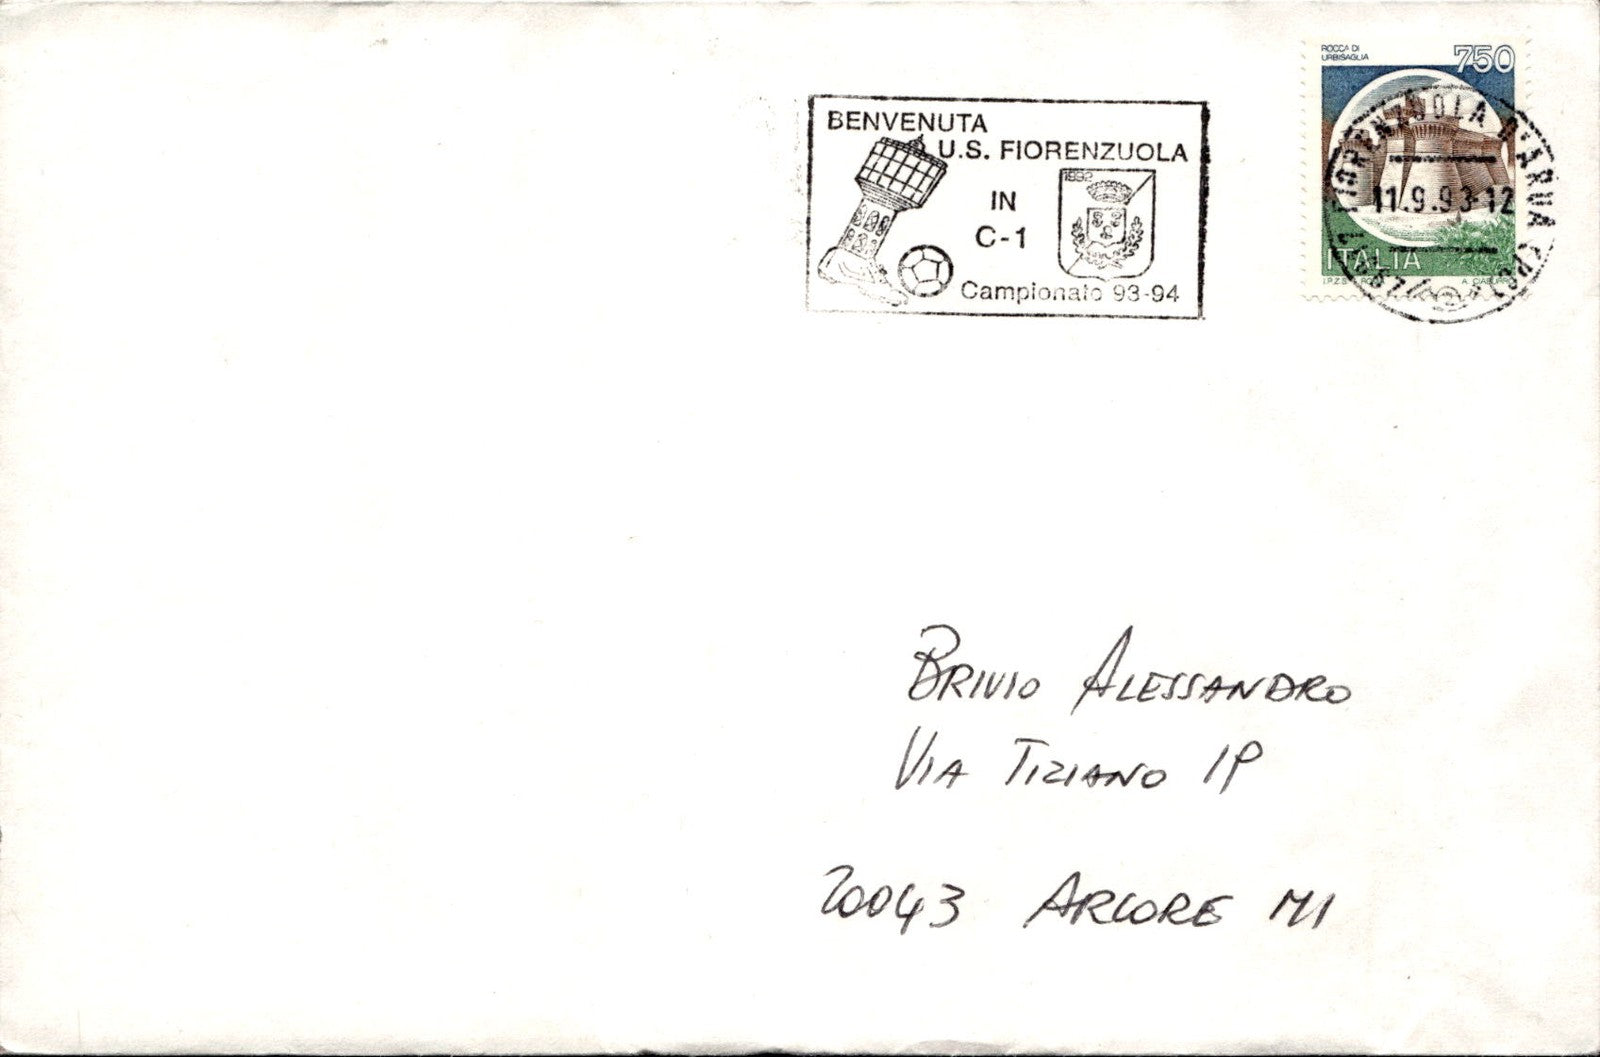 BENVENUTA
U.S. FIORENZUOLA
IN
C-1
1992
Campionato 93-94
ROCCA DI
URBISAGLIA
750
ITALIA
I.P.Z.S. RO
A. CIABURRO
FIORENZUOLA D'ARDA (PC)
11.9.93-12
BRIVIO ALESSANDRO
VIA TIZIANO 19
20043 ARCORE MI